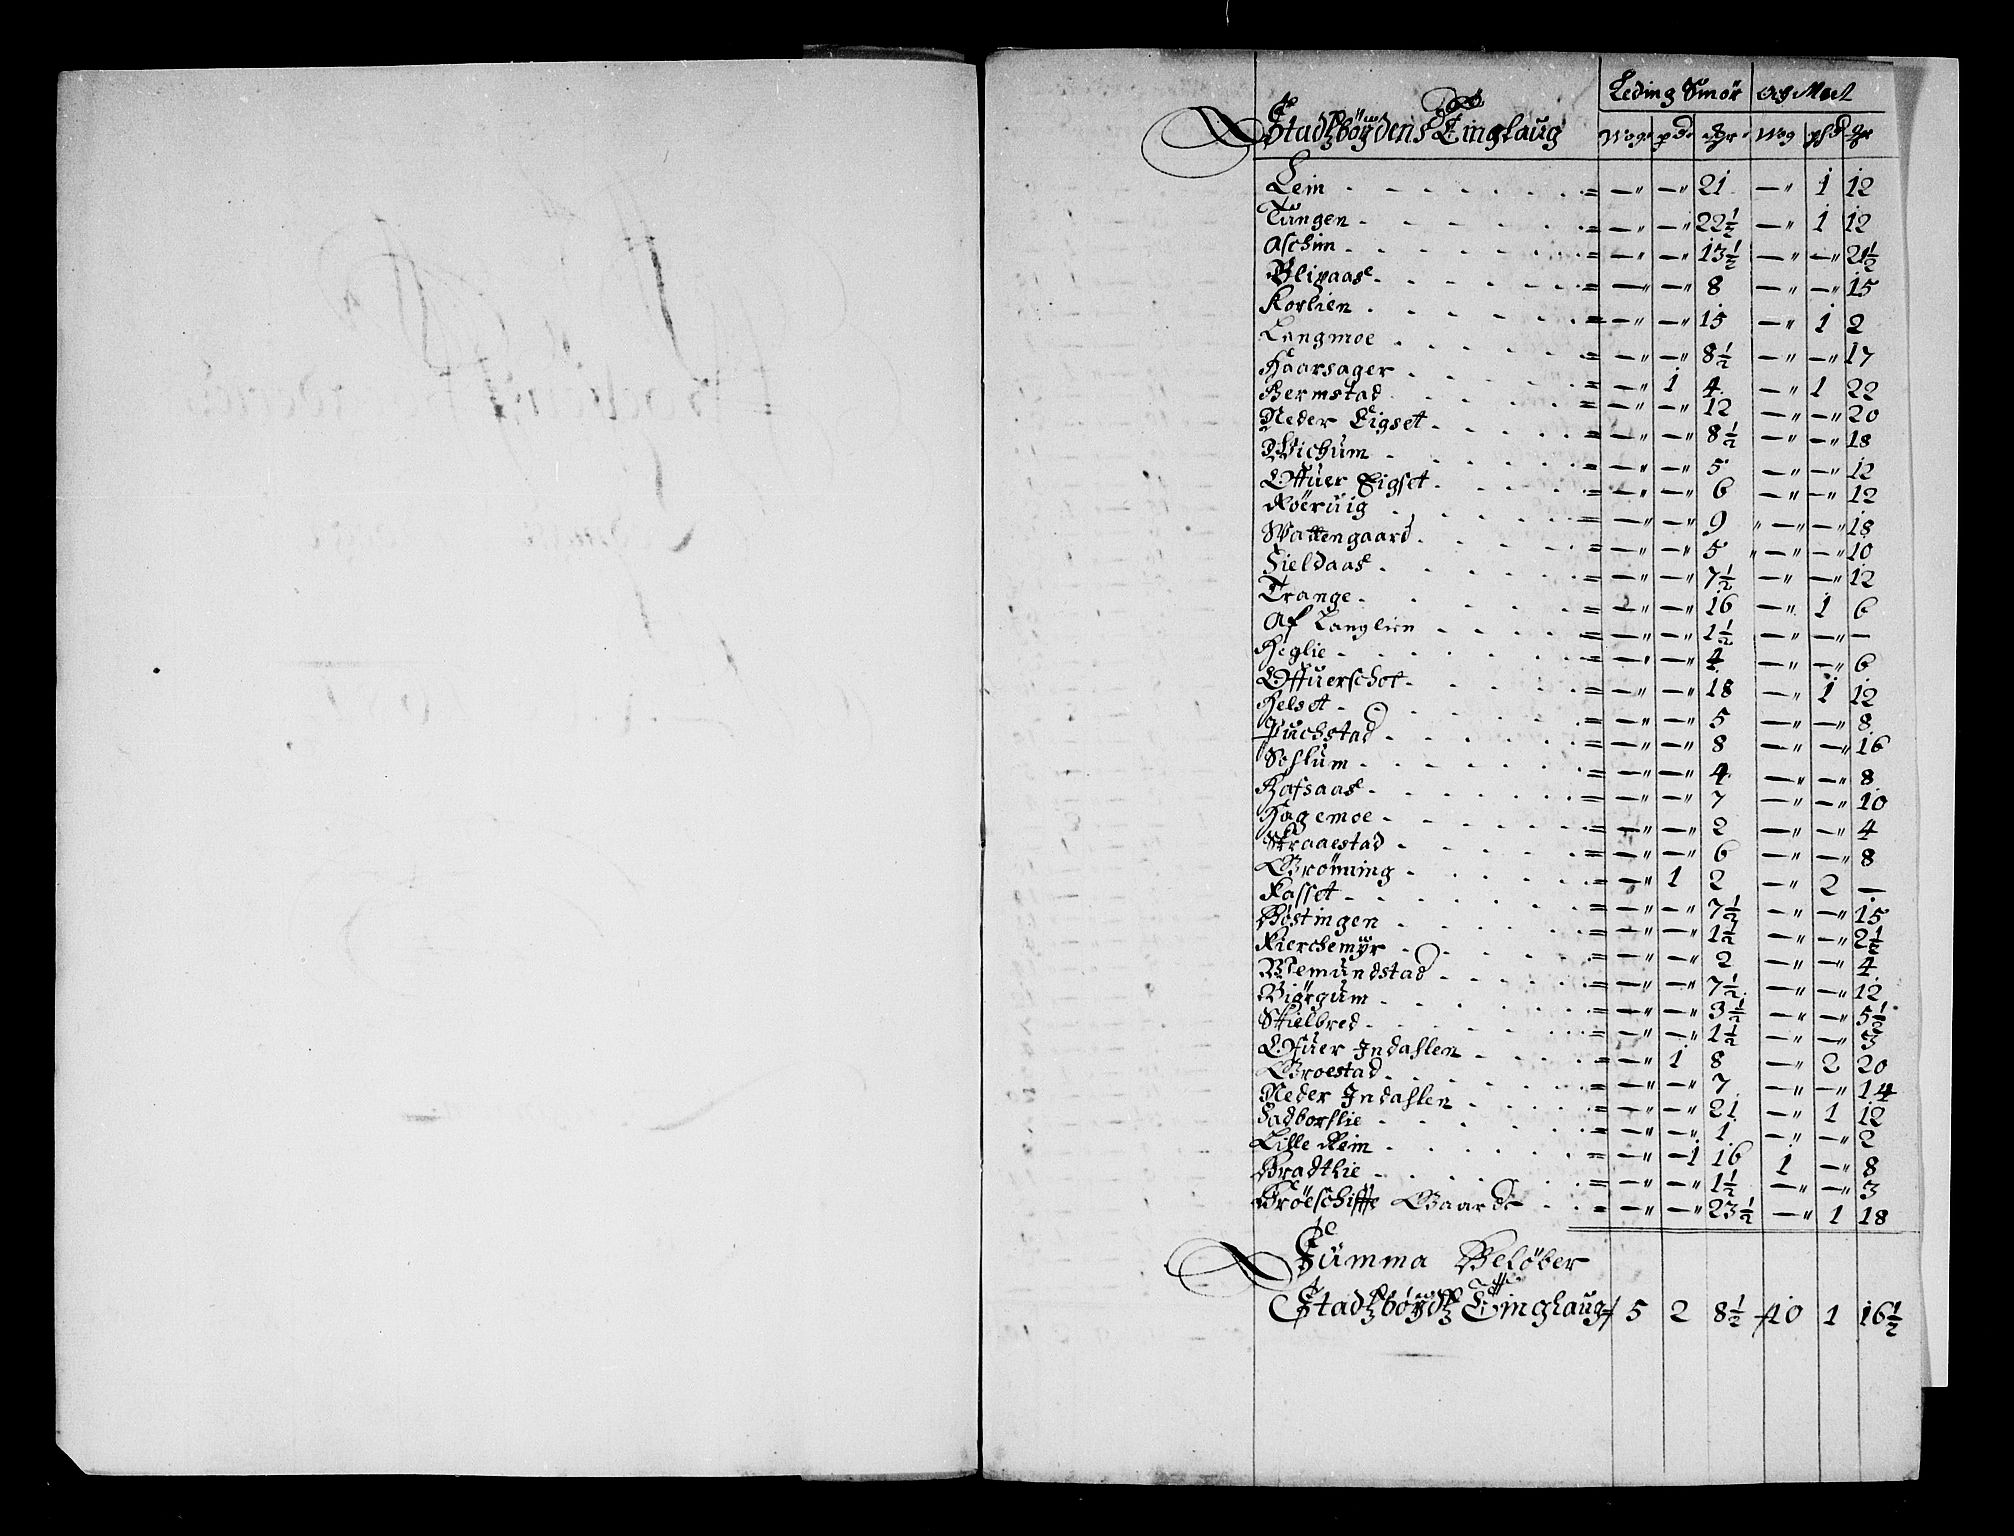 Leding Smör og Meel
Stadtzböÿdens Tinglaug Wog pd. mr. Wog pd mr
Lein = —" —" 21 —" 1 12
Tüngen = —" —" 22½ —" 1 12
Aschim = —" —" 13½ —" —" 21½
Blixaas = —" —" 8 —" —" 15
Korlien = —" —" 15 —" 1 2
Langmoe = —" —" 8½ —" —" 17
Haarsager = —" 1 4 —" 1 22
Hermstad = —" —" 12 —" —" 20
Neder Eigset = —" —" 8½ —" —" 18
Wichum = —" —" 5 —" —" 12
Offuer Eigset = —" —" 6 —" —" 12
Röeruig = —" —" 9 —" —" 18
Wattengaard = —" —" 5 —" —" 10
Fieldaas = —" —" 7½ —" —" 12
Trange = —" —" 16 —" 1 6
Af Langlien = —" —" 1½ —" —" —
Heglie = —" —" 4 —" —" 6
Offuerschot = —" —" 18 —" 1 12
Helset = —" —" 5 —" —" 8
Puchstad = —" —" 8 —" —" 16
Sohlum = —" —" 4 —" —" 8
Hafsaas = —" —" 7 —" —" 10
Hagemoe = —" —" 2 —" —" 4
Skraaestad = —" —" 6 —" —" 8
Grönning = —" 1 2 —" 2 —
Rasset = —" —" 7½ —" —" 15
Höstingen = —" —" 1½ —" —" 2½
Kierchemÿr = —" —" 2 —" —" 4
Wemundstad = —" —" 7½ —" —" 12
Biörgum = —" —" 3½ —" —" 5½
Skielbred = —" —" 1½ —" —" 3
Ofuer Indahlen = —" 1 8 —" 2 20
Groestad = —" —" 7 —" —" 14
Neder Indahlen = —" —" 21 —" 1 12
Fadborslie = —" —" 1 —" —" 2
Lille Rein = —" —1 16 1 —" 8
Bradtlie = —" —" 1½ —" —" 3
Gaarde = —" —" 23½ —" 1 18
Summa Beløber
Stadtzböÿdtz Tinglaug 5 2 8½ 10 1 16½